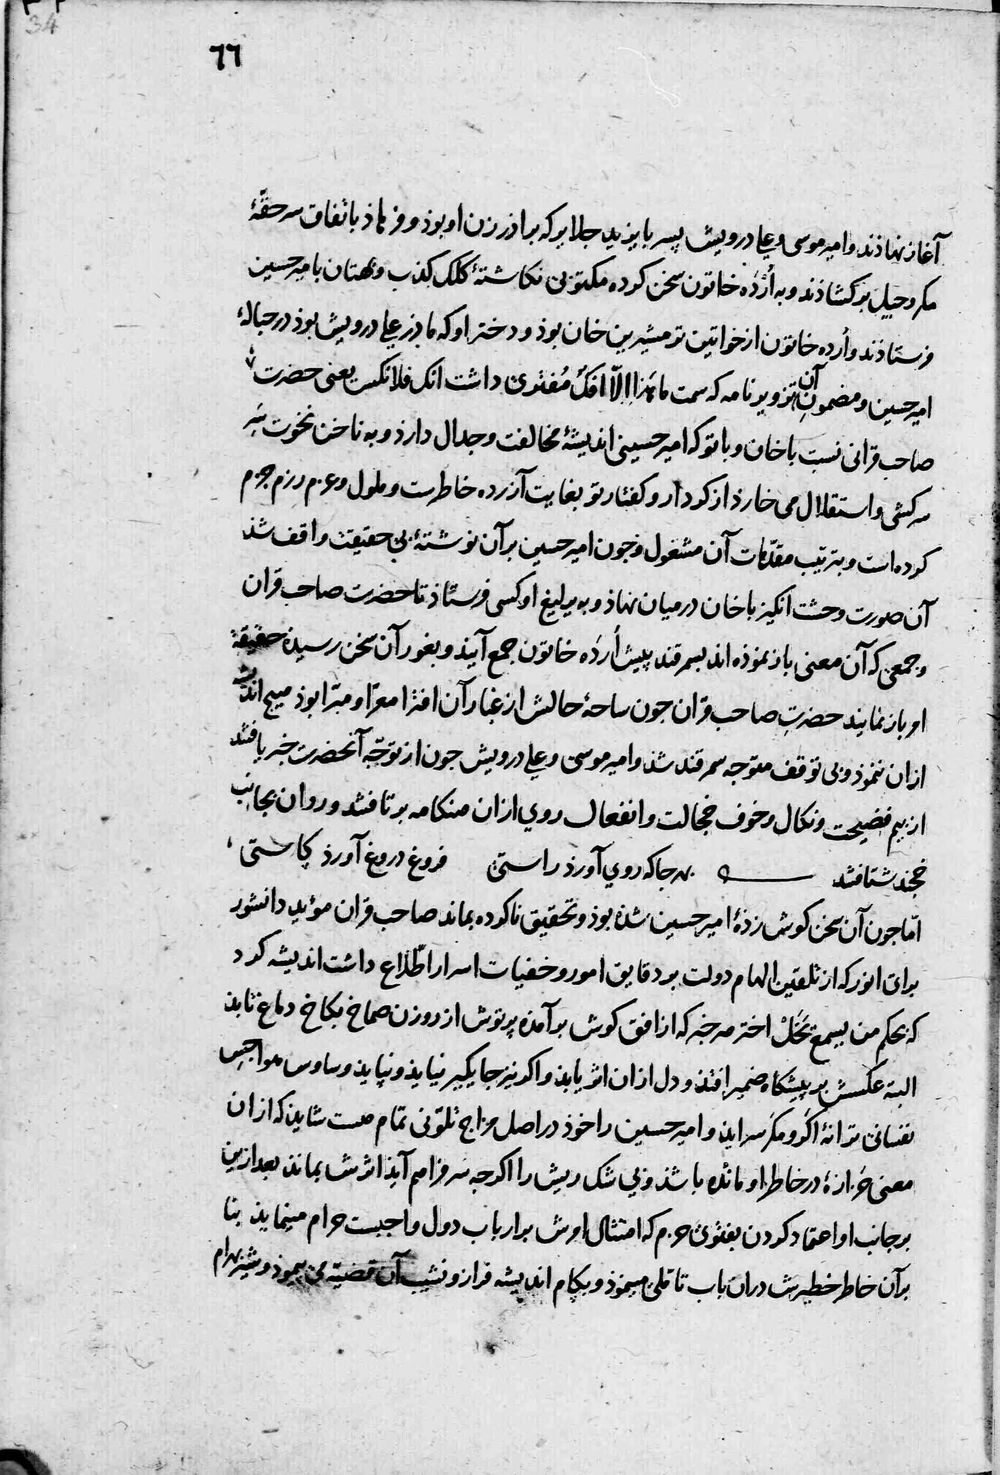 34
٦٦
آغاز نهاذند و امیر موسی و علی درویش پسر بایزید جلایر که براذر زن او بوذ و فرهاذ باتفاق سر حقّهٔ
مکر و حیل برکشاذند و به اُردَه خاتون سخن کرده مکتوبی نکاشتهٔ کلک کذب و بهتان بامیر حسین
فرستاذند و اُرده خاتون از خواتین ترمشیرین خان بوذ و دختر او که مادر علی درویش بوذ در حبالهٔ
امیر حسین و مضمون آن تزویر نامه که سمت ما هذا الّا افکٌ مُفتریً داشت انک فلانکس یعنی حضرت
صاحب قرانی نسبت با خان و با تو که امیر حسینی اندیشهٔ مخالفت و جدال دارذ و به ناخن نخوت سَرِ
سرکشی و استقلال می خارذ از کردار و کفتار تو بغایت آزرده خاطرست و ملول و عزم رزم جزم
کرده است و بترتیب مقدّمات آن مشغول و جون امیر حسین بر آن نوشتهٔ بی حقیقت واقف شد
آن صورت وحشت انکیز با خان درمیان نهاذ و به یرلیغ او کسی فرستاذ تا حضرت صاحب قران
و جمعی که آن معنی باز نموذه اند بسمرقند پیش اُردَه خاتون جمع آیند و بغور آن سخن رسیده حقیقة
او باز نمایند حضرتِ صاحب قران جون ساحهٔ حالش از غبار آن افترا معرّا و مبرّا بوذ هیچ اندیشه
ازان ننموذ و بی توقف متوجه سمرقند شذ و امیر موسی و علی درویش جون از توجّه آنحضرت خبر یافتند
از بیم فضیحت و نکال و خوف خجالت و انفعال روی ازان هنکامه برتافتند و روان بجانب
خجند شتافتند بهر جا که روی آورذ راستی فروغ دروغ آورذ کاستی
امّا جون آن سخن کوش زدهٔ امیر حسین شذه بوذ و تحقیق ناکرده بماند صاحب قران مؤید دانشور
برای انور که از تلقین الهام دولت بر دقایق امور و خفیات اسرار اطّلاع داشت اندیشه کرد
که بحکم من یسمع یَخَلْ اختر هر خبر که از افق کوش برآمده پرتوش از روزن صماخ بکاخ دماغ تابذ
البته عکسش بر پیشکاه ضمیر افتذ و دل ازان اثر یابذ و اکر نیز جایکیر نیایذ و نپایذ وساوس هواجس
نفسانی ترانهٔ اکر و مکر سرایذ و امیر حسین را خوذ در اصل مزاج تلوّنی تمام هست شایذ که ازان
معنی خزازهٔ در خاطر او مانده باشذ و بی شک ریش را اکرجه سر فراهم آیذ اثرش بماند بعد ازین
بر جانب او اعتماد کردن بفتوی حزم که امتثال اوامرش بر ارباب دول واجبست حرام مینمایذ بنا
بر آن خاطر خطیرش دران باب تاملی مینموذ و بکام اندیشه فراز و نشیب آن قضیه می پیموذ و شیر بهرام